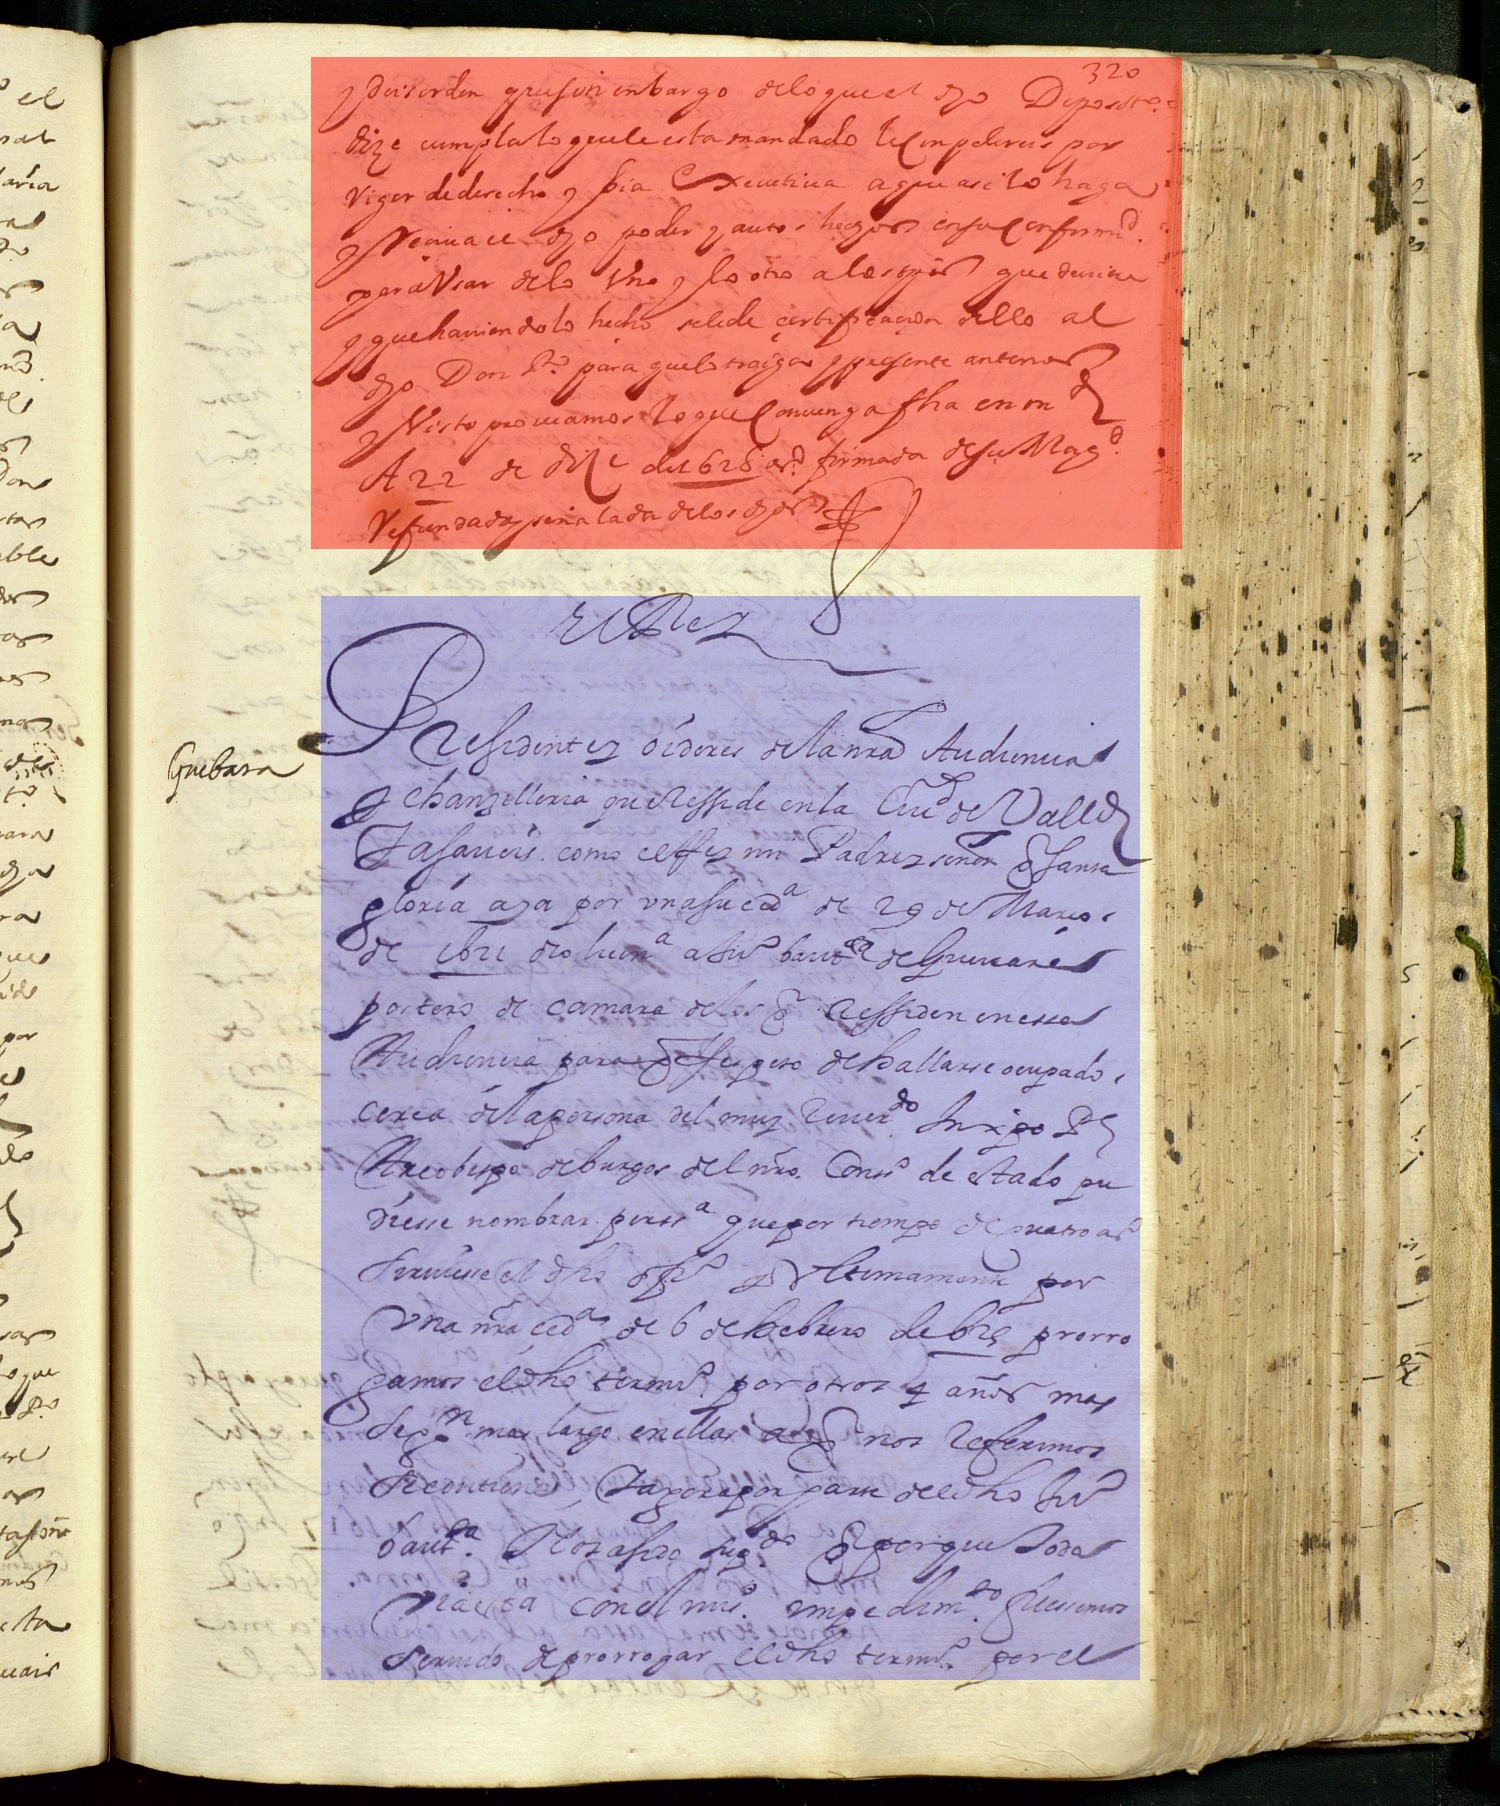 320
y deis orden que sin enbargo de lo que el dho Deposito
dize cumpla lo que le esta mandado le conpelereis por
Vigor de derecho y bia executiua a que asi lo haga
y Reciua el dho poder y autos hechos en su conformd.
para Vsar de lo Vno y lo otro a los que duriere
y que hauiendolo hecho se le de certificacion dello al
dho Don Po. para que lo traiga y presente ante nos
y Visto proueamos lo que conuenga fha en md
A 22 de dize de 1626 as. firmada de su Magd.
Refrendada y señalada de los dhos
el Rey
Guebara
Presidente y oidores de la nra Audiencia
y chanzilleria que Resside en la Ciud de Valld
Ya saueis como el Rey mi Padre y señor q santa
gloria aya por vna su cedª de 29 de Março
de 1621 dio licenª a Juº bautª de Gueuara
portero de camara de los q Ressiden en essa
Audiencia para q Respeto de hallarse ocupado
cerca de la persona del muy Reuerdo. In xpo Pe
Arcobispo de burgos del nro. Consº de estado pu
diesse nombrar persª que por tiempo de quatro as
siruiesse el dho offº y Vltimamente por
Vna nra cedª de 6 de hebrero de 625 prorro
gamos el dho termº. por otros 4 años mas
segn mas largo en ellas a q nos Referimos
se contiene, Y agora por parte del dho Juº
bautª. Nos a sido supdo q porque toda
Via esta con el mismo. impedimto. fuessemos
seruido de prorrogar el dho termº. por el